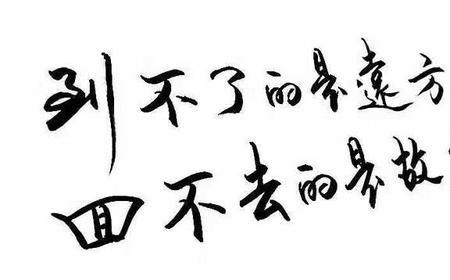 到不了的是遠方
回不去的是故